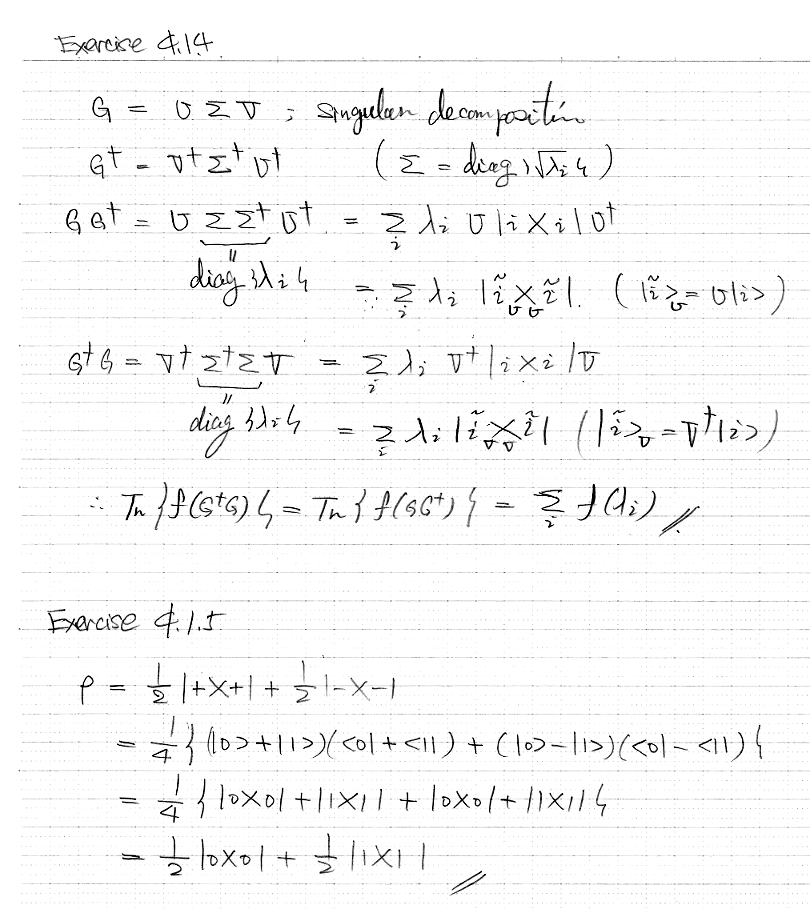 Exercise 4.1.4
G = U Σ V ; singular decomposition
G† = V†Σ†U† ( Σ = diag{√λi} )
GG† = U ΣΣ† U† = Σ_i λi U|i><i|U†
= diag{λi}
∴ = Σ_i λi |ĩ>_U _U<ĩ|. ( |ĩ>_U = U|i> )
G†G = V†Σ†ΣV = Σ_i λi V†|i><i|V
= diag{λi} = Σ_i λi |ĩ>_V _V<ĩ| ( |ĩ>_V = V†|i> )
∴ Tr{f(G†G)} = Tr{f(GG†)} = Σ_i f(λi) //
Exercise 4.1.5
ρ = 1/2 |+><+| + 1/2 |-><-|
= 1/4 { (|0>+|1>)(<0|+<1|) + (|0>-|1>)(<0|-<1|) }
= 1/4 { |0><0| + |1><1| + |0><0| + |1><1| }
= 1/2 |0><0| + 1/2 |1><1| //